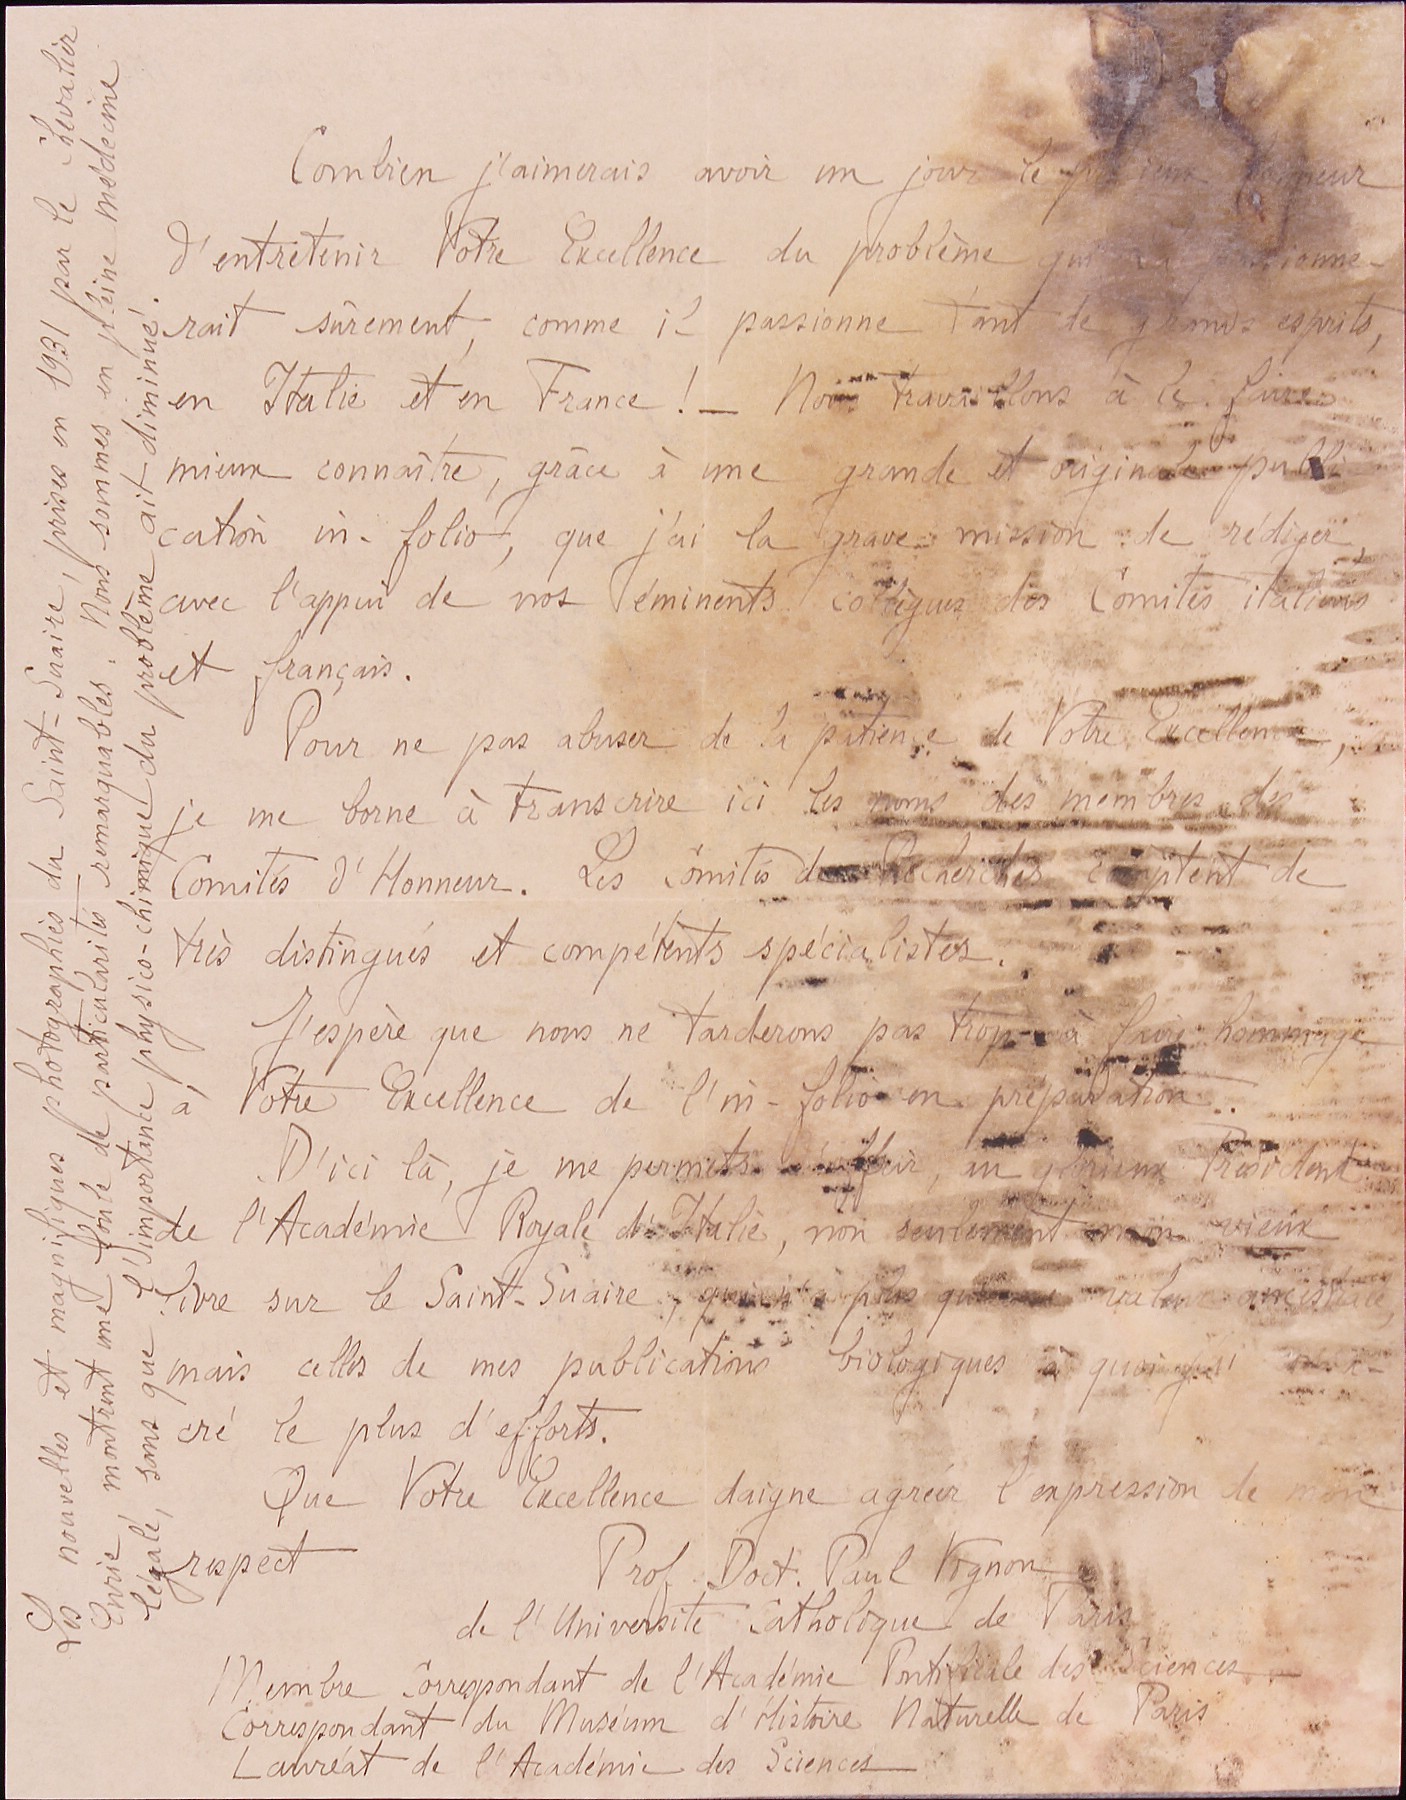 Combien j'aimerais avoir un jour le précieux honneur
d'entretenir Votre Excellence du problème qui la passionne-
rait sûrement, comme il passionne tant de grands esprits,
en Italie et en France ! — Nous travaillons à le faire
mieux connaître, grâce à une grande et originale publi-
cation in-folio, que j'ai la grave mission de rédiger,
avec l'appui de nos éminents collègues des Comités italiens
et français.
Pour ne pas abuser de la patience de Votre Excellence,
je me borne à transcrire ici les noms des membres des
Comités d'Honneur. Les Comités de Recherches comptent de
très distingués et compétents spécialistes.
J'espère que nous ne tarderons pas trop à faire hommage
à Votre Excellence de l'in-folio en préparation.
D'ici là, je me permets d'offrir, au glorieux Président
de l'Académie Royale d'Italie, non seulement mon vieux
livre sur le Saint-Suaire, qui n'a plus qu'une valeur ancestrale,
mais celles de mes publications biologiques à quoi j'ai consa-
cré le plus d'efforts.
Que Votre Excellence daigne agréer l'expression de mon
respect
Prof. Doct. Paul Vignon
de l'Université Catholique de Paris
Membre Correspondant de l'Académie Pontificale des Sciences
Correspondant du Muséum d'Histoire Naturelle de Paris
Lauréat de l'Académie des Sciences
Les nouvelles et magnifiques photographies du Saint-Suaire, prises en 1931 par le Chevalier
Enrie, montrent une foule de particularités remarquables. Nous sommes en pleine médecine
légale, sans que l'importance physico-chimique du problème ait diminué.